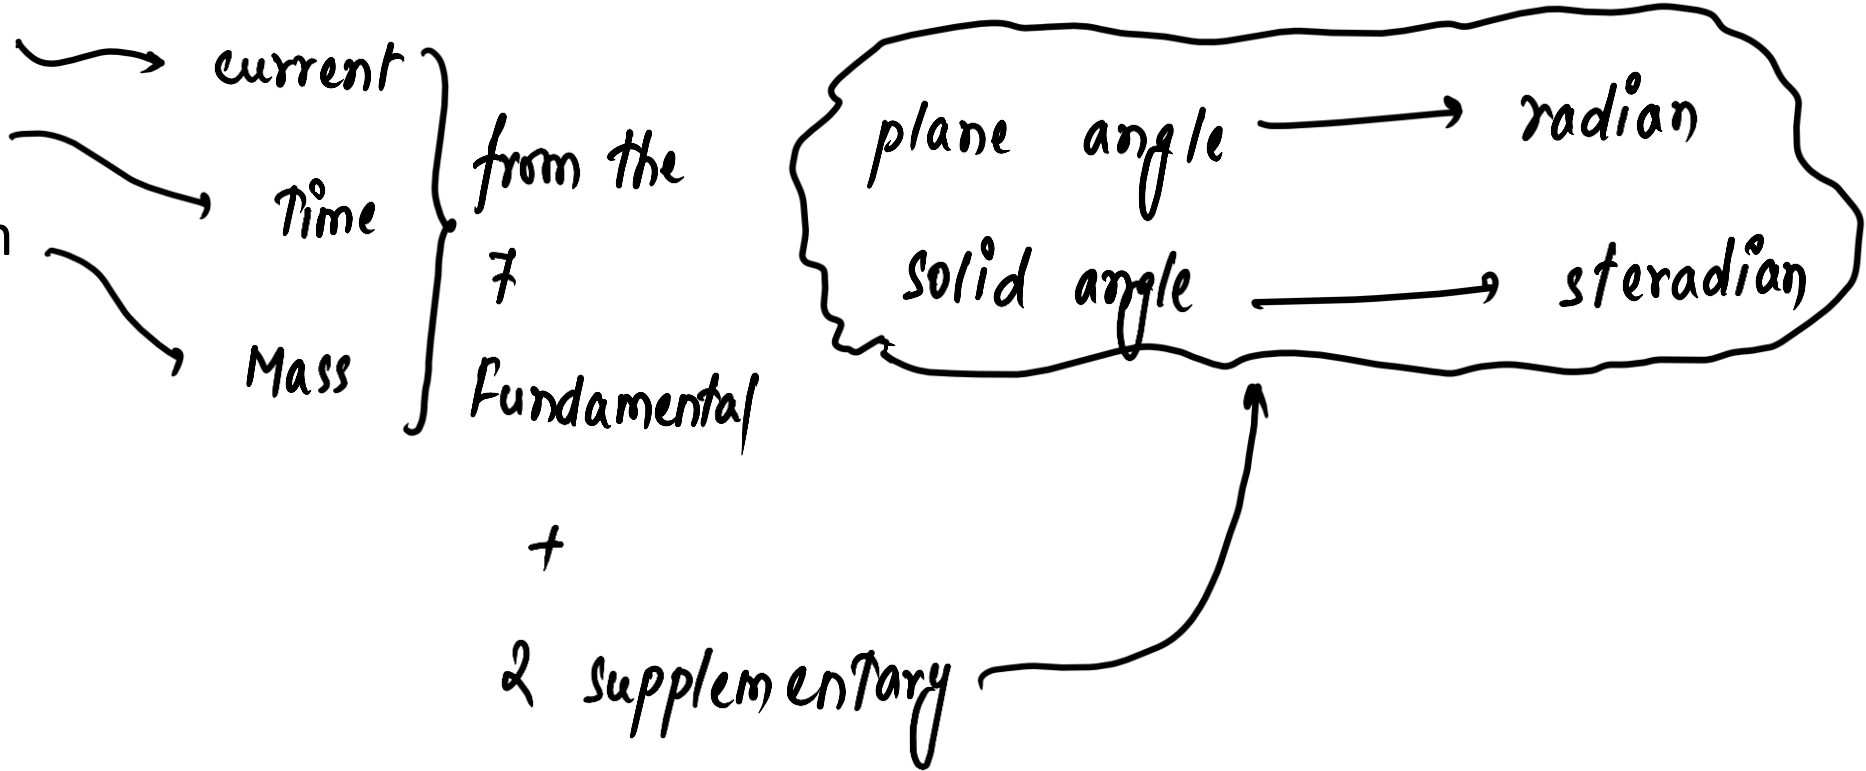 current
Time
Mass
from the
7
Fundamental
+
2 supplementary
plane angle → radian
solid angle → steradian